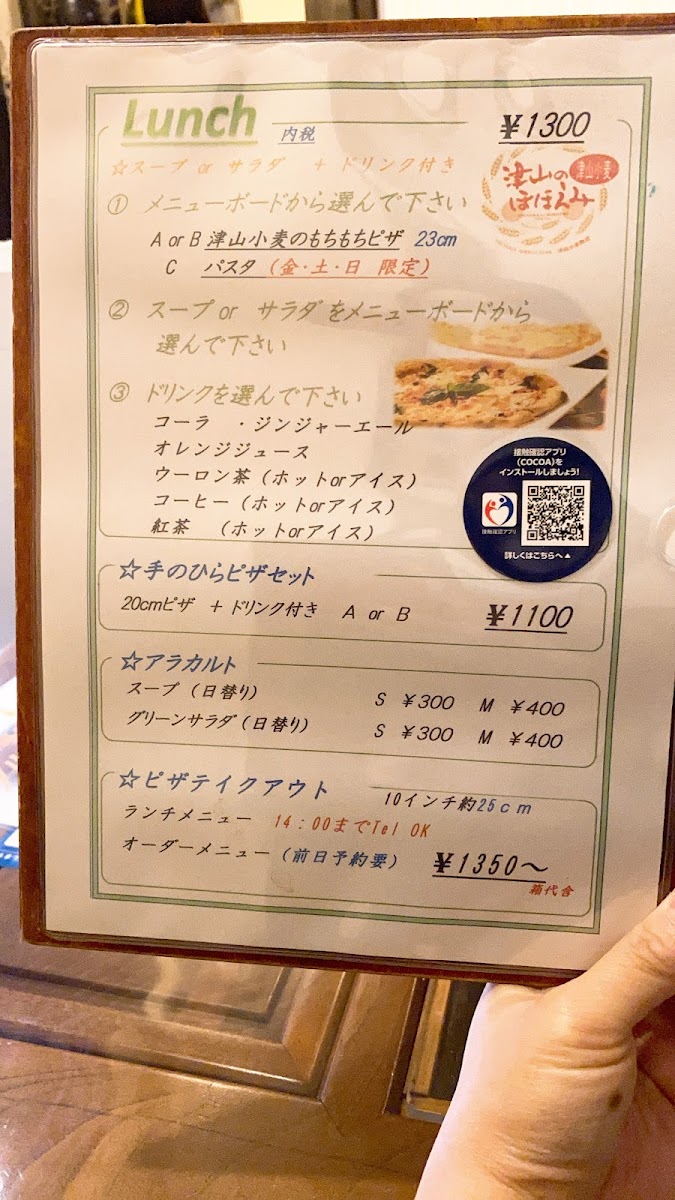 Lunch 内税 ¥1300
☆スープ or サラダ + ドリンク付き
津山の
ほほえみ
津山小麦
① メニューボードから選んで下さい
A or B 津山小麦のもちもちピザ 23cm
C パスタ (金・土・日 限定)
② スープ or サラダをメニューボードから
選んで下さい
③ ドリンクを選んで下さい
コーラ ・ジンジャーエール
オレンジジュース
ウーロン茶 (ホットorアイス)
コーヒー (ホットorアイス)
紅茶 (ホットorアイス)
接触確認アプリ
(COCOA)を
インストールしましょう!
接触確認アプリ
詳しくはこちらへ▲
☆手のひらピザセット
20cmピザ + ドリンク付き A or B ¥1100
☆アラカルト
スープ (日替り) S ¥300 M ¥400
グリーンサラダ (日替り) S ¥300 M ¥400
☆ピザテイクアウト 10インチ約25cm
ランチメニュー 14:00までTel OK
オーダーメニュー (前日予約要) ¥1350〜
箱代含